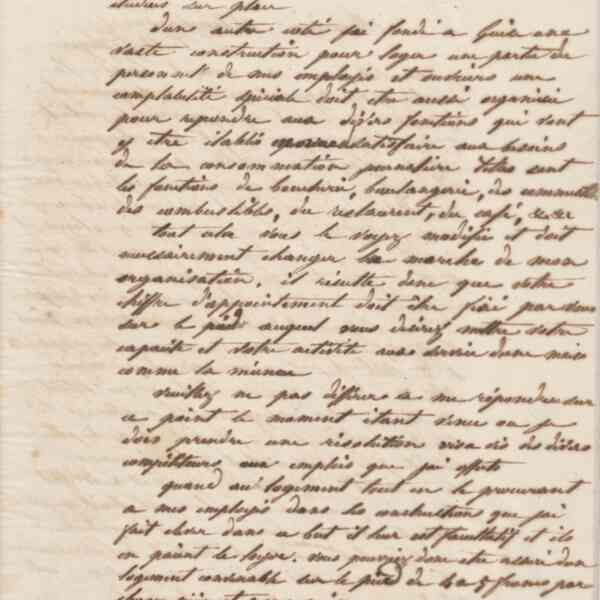 sur place
dans autre coté j'ai fondé a Guise une
vaste construction pour loger une partie du
personnel de mes employés et ouvriers une
comptabilité spéciale doit etre aussi organisée
pour repondre aux divers fonctions qui vont
y etre établis satisfaire aux besoins
de la consommation journaliere telles sont
les fonctions de boucherie, boulangerie, des comestibles
des combustibles, du restaurent, du café, &c &c
tout cela vous le voyez modifie et doit
necessairement changer la marche de mon
organisation. il résulte donc que votre
chiffre d'appointement doit être fixé par vous
sur le pied auquel vous desirez mettre votre
capacité et votre activité au service dune maison
comme la mienne
veuillez ne pas différer a me répondre sur
ce point le moment étant venu ou je
dois prendre une résolution vis a vis des divers
compétiteurs aux emplois que j'ai offerts
quand au logement tout en le procurant
a mes employés dans les constructions que j'ai
fait élever dans ce but il leur est facultatif et ils
en paient le loyer. vous pouvez donc etre assuré dun
logement convenable sur le pied de 4 a 5 francs par